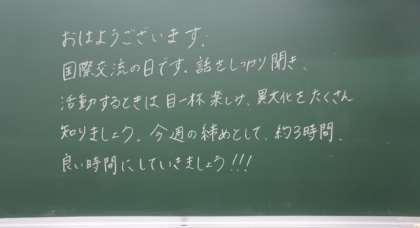 おはようございます.
国際交流の日です. 話をしっかり聞き、
活動するときは目一杯楽しみ、異文化をたくさん
知りましょう. 今週の締めとして、約3時間、
良い時間にしていきましょう!!!